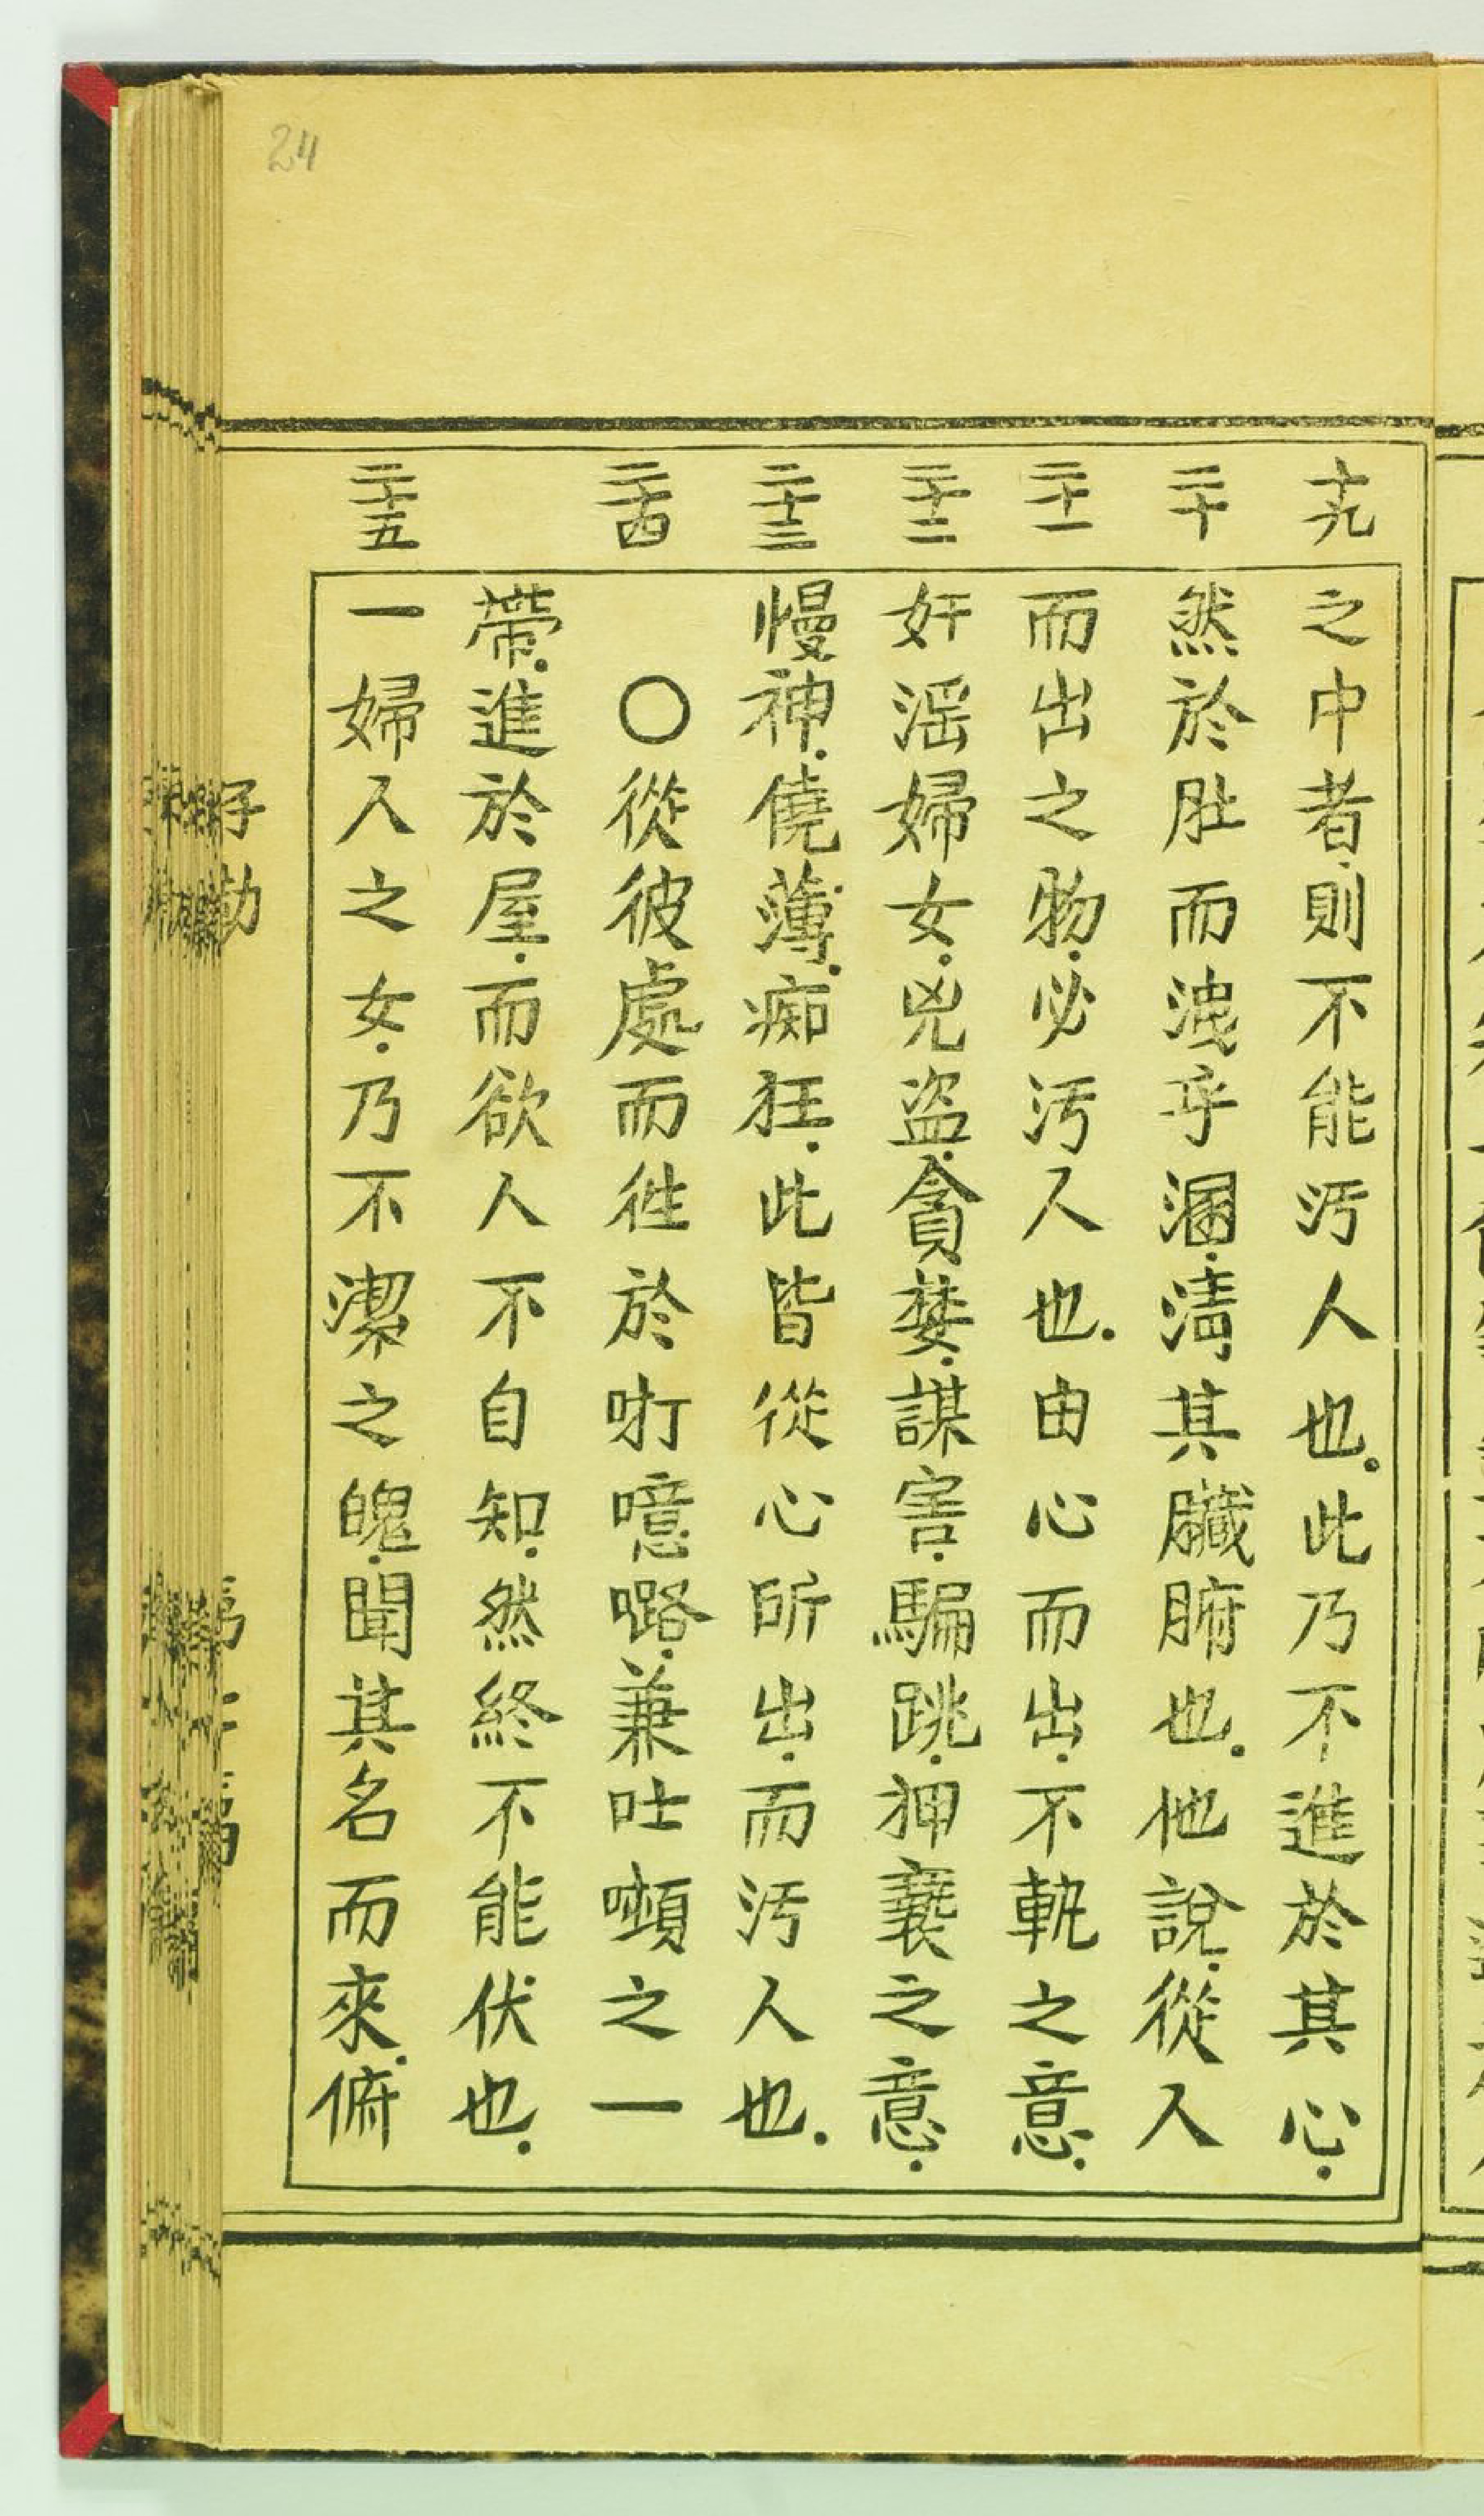 24
十九
二十
二十一
二十二
二十三
二十四
二十五
之中者則不能汚人也此乃不進於其心
然於肚而洩乎溷清其臟腑也他說從人
而出之物必汚人也由心而出不軌之意
奸淫婦女兇盜貪婪謀害騙跳狎䙝之意
慢神僥薄痴狂此皆從心所出而汚人也
〇從彼處而徃於咑噫嚕兼吐㘔之一
帶進於屋而欲人不自知然終不能伏也
一婦人之女乃不潔之魄聞其名而來俯